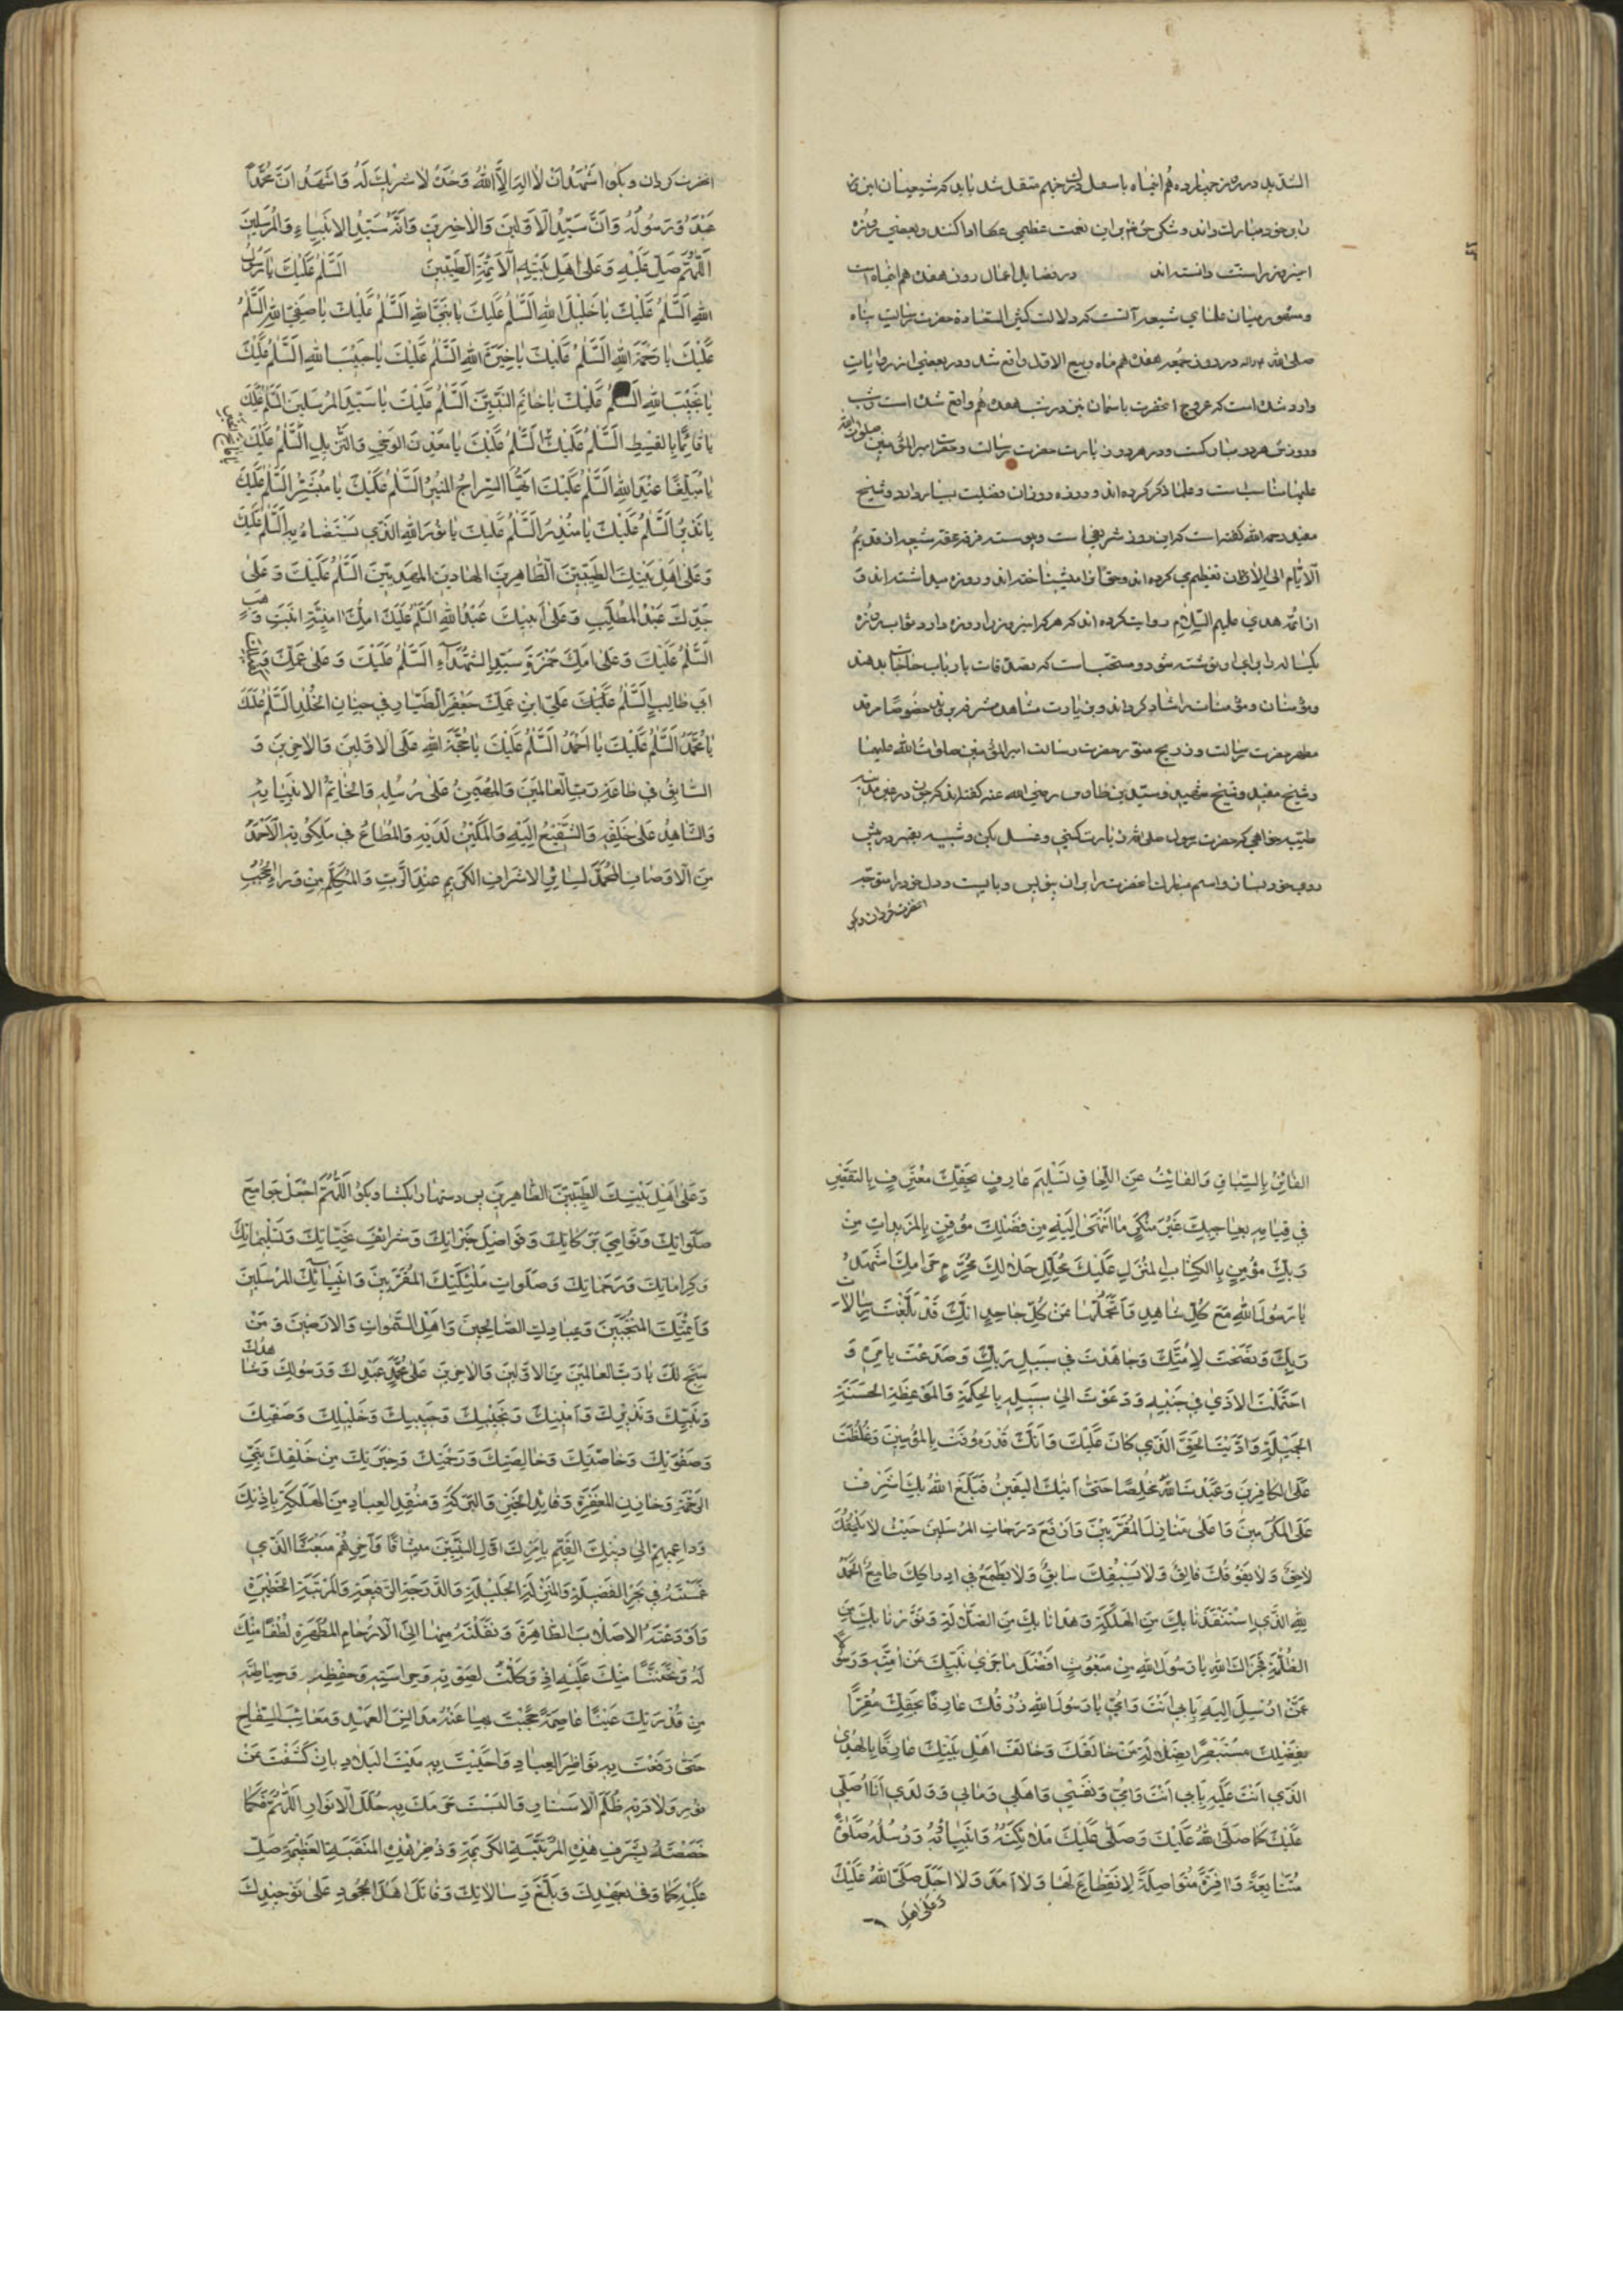 السّدید در روز چهاردهم اینماه باسفل درک جهنم منتقل شد باید که شیعیان این
را بر خود مبارک دانند و شکر حق تعم بر این نعمت عظیمی عطا ادا کنند و بعضی روزه
اینروز را سنّت دانسته‌اند در فضایل اعمال روز هفدهم اینماه است
و مشهور میان علمای شیعه آنست که ولادت کثیر السّعادة حضرت رسالت پناه
صلی الله علیه واله در روز جمعه هفدهم ماه ربیع الاول واقع شد و در بعضی از روایات
وارد شده است که عروج انحضرت باسمان نیز در شب هفدهم واقع شده است و شب
و روزش هر دو مبارکست و در هر دو زیارت حضرت رسالت و حضرت امیر المؤمنین صلوات الله
علیهما مناسبست و علما ذکر کرده‌اند و روزه روزان فضیلت بسیار دارد و شیخ
مفید رحمه الله گفته است که این روز شریفی است و پیوسته فرقه محقه شیعه از قدیم
الایّام الی الآن تعظیم وی کرده‌اند و حق آنرا میشناخته‌اند و روزه میداشته‌اند و
از ائمّه هدی علیهم السّلام روایت کرده‌اند که هر که اینروز را روزه دارد ثواب روزه
یکساله برای او نوشته شود و مستحبّ است که تصدقات بارباب حاجات بدهند
و مؤمنان و مؤمنات را شاد گردانند و بزیارت مشاهد مشرفه بروند خصوصا مرقد
مطهر حضرت رسالت و ضریح منور حضرت امیر المؤمنین صلوات الله علیهما
و شیخ مفید و شیخ شهید و سیّد بن طاوس رضی الله عنهم گفته‌اند که چون در غیر مدینه
طیّبه خواهی که حضرت رسول صلی الله را زیارت کنی غسل بکن و شبیه بقبر در پیش
روی خود بساز و اسم مبارک انحضرت را بر آن بنویس و بایست و دل خود را متوجّه
انحضرت گردان و بگو
انحضرت گردان و بگو اَشْهَدُ اَنْ لا اِلهَ اِلَّا اللهُ وَحْدَهُ لا شَریکَ لَهُ وَاَشْهَدُ اَنَّ مُحَمَّداً
عَبْدُهُ وَرَسُولُهُ وَاَنَّهُ سَیِّدُ الْاَوَّلینَ وَالْاخِرینَ وَاَنَّهُ سَیِّدُ الْاَنْبِیاءِ وَالْمُرْسَلینَ
اَللّهُمَّ صَلِّ عَلَیْهِ وَعَلی اَهْلِ بَیْتِهِ الْاَئِمَّةِ الطَّیِّبینَ اَلسَّلامُ عَلَیْکَ یا رَسُولَ
اللهِ اَلسَّلامُ عَلَیْکَ یا خَلیلَ اللهِ اَلسَّلامُ عَلَیْکَ یا نَبِیَّ اللهِ اَلسَّلامُ عَلَیْکَ یا صَفِیَّ اللهِ اَلسَّلامُ
عَلَیْکَ یا رَحْمَةَ اللهِ اَلسَّلامُ عَلَیْکَ یا خِیَرَةَ اللهِ اَلسَّلامُ عَلَیْکَ یا حَبیبَ اللهِ اَلسَّلامُ عَلَیْکَ
یا نَجیبَ اللهِ اَلسَّلامُ عَلَیْکَ یا خاتَمَ النَّبِیّینَ اَلسَّلامُ عَلَیْکَ یا سَیِّدَ الْمُرْسَلینَ اَلسَّلامُ عَلَیْکَ
یا قائِماً بِالْقِسْطِ اَلسَّلامُ عَلَیْکَ اَلسَّلامُ عَلَیْکَ یا مَعْدِنَ الْوَحْیِ وَالتَّنْزیلِ اَلسَّلامُ عَلَیْکَ
یا مُبَلِّغاً عَنِ اللهِ اَلسَّلامُ عَلَیْکَ اَیُّهَا السِّراجُ الْمُنیرُ اَلسَّلامُ عَلَیْکَ یا مُبَشِّرُ اَلسَّلامُ عَلَیْکَ
یا نَذیرُ اَلسَّلامُ عَلَیْکَ یا مُنْذِرُ اَلسَّلامُ عَلَیْکَ یا نُورَ اللهِ الَّذی یُسْتَضاءُ بِهِ اَلسَّلامُ عَلَیْکَ
وَعَلی اَهْلِ بَیْتِکَ الطَّیِّبینَ الطّاهِرینَ الْهادینَ الْمَهْدِیّینَ اَلسَّلامُ عَلَیْکَ وَعَلی
جَدِّکَ عَبْدِ الْمُطَّلِبِ وَعَلی اَبیکَ عَبْدِ اللهِ اَلسَّلامُ عَلَیْکَ اُمِّکَ امِنَةَ بِنْتِ وَهَبٍ
اَلسَّلامُ عَلَیْکَ وَعَلی عَمِّکَ حَمْزَةَ سَیِّدِ الشُّهَداءِ اَلسَّلامُ عَلَیْکَ وَعَلی عَمِّکَ
اَبی طالِبٍ اَلسَّلامُ عَلَیْکَ عَلی ابْنِ عَمِّکَ جَعْفَرٍ الطَّیّارِ فی جِنانِ الْخُلْدِ اَلسَّلامُ عَلَیْکَ
یا مُحَمَّدُ اَلسَّلامُ عَلَیْکَ یا اَحْمَدُ اَلسَّلامُ عَلَیْکَ یا حُجَّةَ اللهِ عَلَی الْاَوَّلینَ وَالْاخِرینَ وَ
السّابِقُ فی طاعَةِ رَبِّ الْعالَمینَ وَالْمُهَیْمِنُ عَلی رُسُلِهِ وَالْخاتِمُ لِاَنْبِیائِهِ
وَالشّاهِدُ عَلی خَلْقِهِ وَالشَّفیعُ اِلَیْهِ وَالْمَکینُ لَدَیْهِ وَالْمُطاعُ فی مَلَکُوتِهِ الْاَحْمَدُ
مِنَ الْاَوْصافِ الْمُحَمَّدُ لِسائِرِ الْاَشْرافِ الْکَریمِ عِنْدَ الرَّبِّ وَالْمُکَلَّمُ مِنْ وَراءِ الْحُجُبِ
الْفائِزُ بِالسِّباقِ وَالْفائِتُ عَنِ اللِّحاقِ تَسْلیمَ عارِفٍ بِحَقِّکَ مُعْتَرِفٍ بِالتَّقْصیرِ
فی قِیامِهِ بِواجِبِکَ غَیْرَ مُنْکِرٍ مَا انْتَهی اِلَیْهِ مِنْ فَضْلِکَ مُوقِنٍ بِالْمَزیداتِ مِنْ
رَبِّکَ مُؤْمِنٍ بِالْکِتابِ الْمُنْزَلِ عَلَیْکَ مُحَلِّلٍ حَلالَکَ مُحَرِّمٍ حَرامَکَ اَشْهَدُ
یا رَسُولَ اللهِ مَعَ کُلِّ شاهِدٍ وَاَتَحَمَّلُها عَنْ کُلِّ جاحِدٍ اَنَّکَ قَدْ بَلَّغْتَ رِسالاتِ
رَبِّکَ وَنَصَحْتَ لِاُمَّتِکَ وَجاهَدْتَ فی سَبیلِ رَبِّکَ وَصَدَعْتَ بِاَمْرِهِ وَ
احْتَمَلْتَ الْاَذی فی جَنْبِهِ وَدَعَوْتَ اِلی سَبیلِهِ بِالْحِکْمَةِ وَالْمَوْعِظَةِ الْحَسَنَةِ
الْجَمیلَةِ وَاَدَّیْتَ الْحَقَّ الَّذی کانَ عَلَیْکَ وَاَنَّکَ قَدْ رَؤُفْتَ بِالْمُؤْمِنینَ وَغَلُظْتَ
عَلَی الْکافِرینَ وَعَبَدْتَ اللهَ مُخْلِصاً حَتّی اَتیکَ الْیَقینُ فَبَلَغَ اللهُ بِکَ اَشْرَفَ
مَحَلِّ الْمُکَرَّمینَ وَاَعْلی مَنازِلِ الْمُقَرَّبینَ وَاَرْفَعَ دَرَجاتِ الْمُرْسَلینَ حَیْثُ لا یَلْحَقُکَ
لاحِقٌ وَلا یَفُوقُکَ فائِقٌ وَلا یَسْبِقُکَ سابِقٌ وَلا یَطْمَعُ فی اِدْراکِکَ طامِعٌ اَلْحَمْدُ
لِلّهِ الَّذِی اسْتَنْقَذَنا بِکَ مِنَ الْهَلَکَةِ وَهَدانا بِکَ مِنَ الضَّلالَةِ وَنَوَّرَنا بِکَ مِنَ
الظُّلْمَةِ فَجَزاکَ اللهُ یا رَسُولَ اللهِ مِنْ مَبْعُوثٍ اَفْضَلَ ما جَزی نَبِیّاً عَنْ اُمَّتِهِ وَرَسُولاً
عَمَّنْ اُرْسِلَ اِلَیْهِ بِاَبی اَنْتَ وَاُمّی یا رَسُولَ اللهِ زُرْتُکَ عارِفاً بِحَقِّکَ مُقِرّاً
بِفَضْلِکَ مُسْتَبْصِراً بِضَلالَةِ مَنْ خالَفَکَ وَخالَفَ اَهْلَ بَیْتِکَ عارِفاً بِالْهُدَی
الَّذی اَنْتَ عَلَیْهِ بِاَبی اَنْتَ وَاُمّی وَنَفْسی وَاَهْلی وَمالی وَوَلَدی اَنَا اُصَلّی
عَلَیْکَ کَما صَلَّی اللهُ عَلَیْکَ وَصَلّی عَلَیْکَ مَلائِکَتُهُ وَاَنْبِیاؤُهُ وَرُسُلُهُ صَلوةً
مُتَتابِعَةً وافِرَةً مُتَواصِلَةً لَا انْقِطاعَ لَها وَلا اَمَدَ وَلا اَجَلَ صَلَّی اللهُ عَلَیْکَ
وَعَلی اَهْلِ
وَعَلی اَهْلِ بَیْتِکَ الطَّیِّبینَ الطّاهِرینَ پس دستها را بگشا و بگو اَللّهُمَّ اجْعَلْ جَوامِعَ
صَلَواتِکَ وَنَوامِیَ بَرَکاتِکَ وَفَواضِلَ خَیْراتِکَ وَشَرائِفَ تَحِیّاتِکَ وَتَسْلیماتِکَ
وَکَراماتِکَ وَرَحَماتِکَ وَصَلَواتِ مَلئِکَتِکَ الْمُقَرَّبینَ وَاَنْبِیائِکَ الْمُرْسَلینَ
وَاَئِمَّتِکَ الْمُنْتَجَبینَ وَعِبادِکَ الصّالِحینَ وَاَهْلِ السَّمواتِ وَالْاَرَضینَ وَمَنْ
سَبَّحَ لَکَ یا رَبَّ الْعالَمینَ مِنَ الْاَوَّلینَ وَالْاخِرینَ عَلی مُحَمَّدٍ عَبْدِکَ وَرَسُولِکَ وَشاهِدِکَ
وَنَبِیِّکَ وَنَذیرِکَ وَاَمینِکَ وَنَجیبِکَ وَحَبیبِکَ وَخَلیلِکَ وَصَفِیِّکَ
وَصَفْوَتِکَ وَخاصَّتِکَ وَخالِصَتِکَ وَرَحْمَتِکَ وَخِیَرَتِکَ مِنْ خَلْقِکَ نَبِیِّ
الرَّحْمَةِ وَخازِنِ الْمَغْفِرَةِ وَقائِدِ الْخَیْرِ وَالْبَرَکَةِ وَمُنْقِذِ الْعِبادِ مِنَ الْهَلَکَةِ بِاِذْنِکَ
وَداعیهِمْ اِلی دینِکَ الْقَیِّمِ بِاَمْرِکَ اَوَّلِ النَّبِیّینَ میثاقاً وَآخِرِهِمْ مَبْعَثاً الَّذی
غَمَسْتَهُ فی بَحْرِ الْفَضیلَةِ وَالْمَنْزِلَةِ الْجَلیلَةِ وَالدَّرَجَةِ الرَّفیعَةِ وَالْمَرْتَبَةِ الْخَطیرَةِ
وَاَوْدَعْتَهُ الْاَصْلابَ الطّاهِرَةَ وَنَقَلْتَهُ مِنْها اِلَی الْاَرْحامِ الْمُطَهَّرَةِ لُطْفاً مِنْکَ
لَهُ وَتَحَنُّناً مِنْکَ عَلَیْهِ اِذْ وَکَّلْتَ لِصَوْنِهِ وَحِراسَتِهِ وَحِفْظِهِ وَحِیاطَتِهِ
مِنْ قُدْرَتِکَ عَیْناً عاصِمَةً حَجَبْتَ بِها عَنْهُ مَدانِسَ الْعَهْرِ وَمَعائِبَ السِّفاحِ
حَتّی رَفَعْتَ بِهِ نَواظِرَ الْعِبادِ وَاَحْیَیْتَ بِهِ مَیْتَ الْبِلادِ بِاَنْ کَشَفْتَ عَنْ
نُورِ وِلادَتِهِ ظُلَمَ الْاَسْتارِ وَاَلْبَسْتَ حَرَمَکَ بِهِ حُلَلَ الْاَنْوارِ اَللّهُمَّ فَکَما
خَصَصْتَهُ بِشَرَفِ هذِهِ الْمَرْتَبَةِ الْکَریمَةِ وَذُخْرِ هذِهِ الْمَنْقَبَةِ الْعَظیمَةِ صَلِّ
عَلَیْهِ کَما وَفی بِعَهْدِکَ وَبَلَّغَ رِسالاتِکَ وَقاتَلَ اَهْلَ الْجُحُودِ عَلی تَوْحیدِکَ